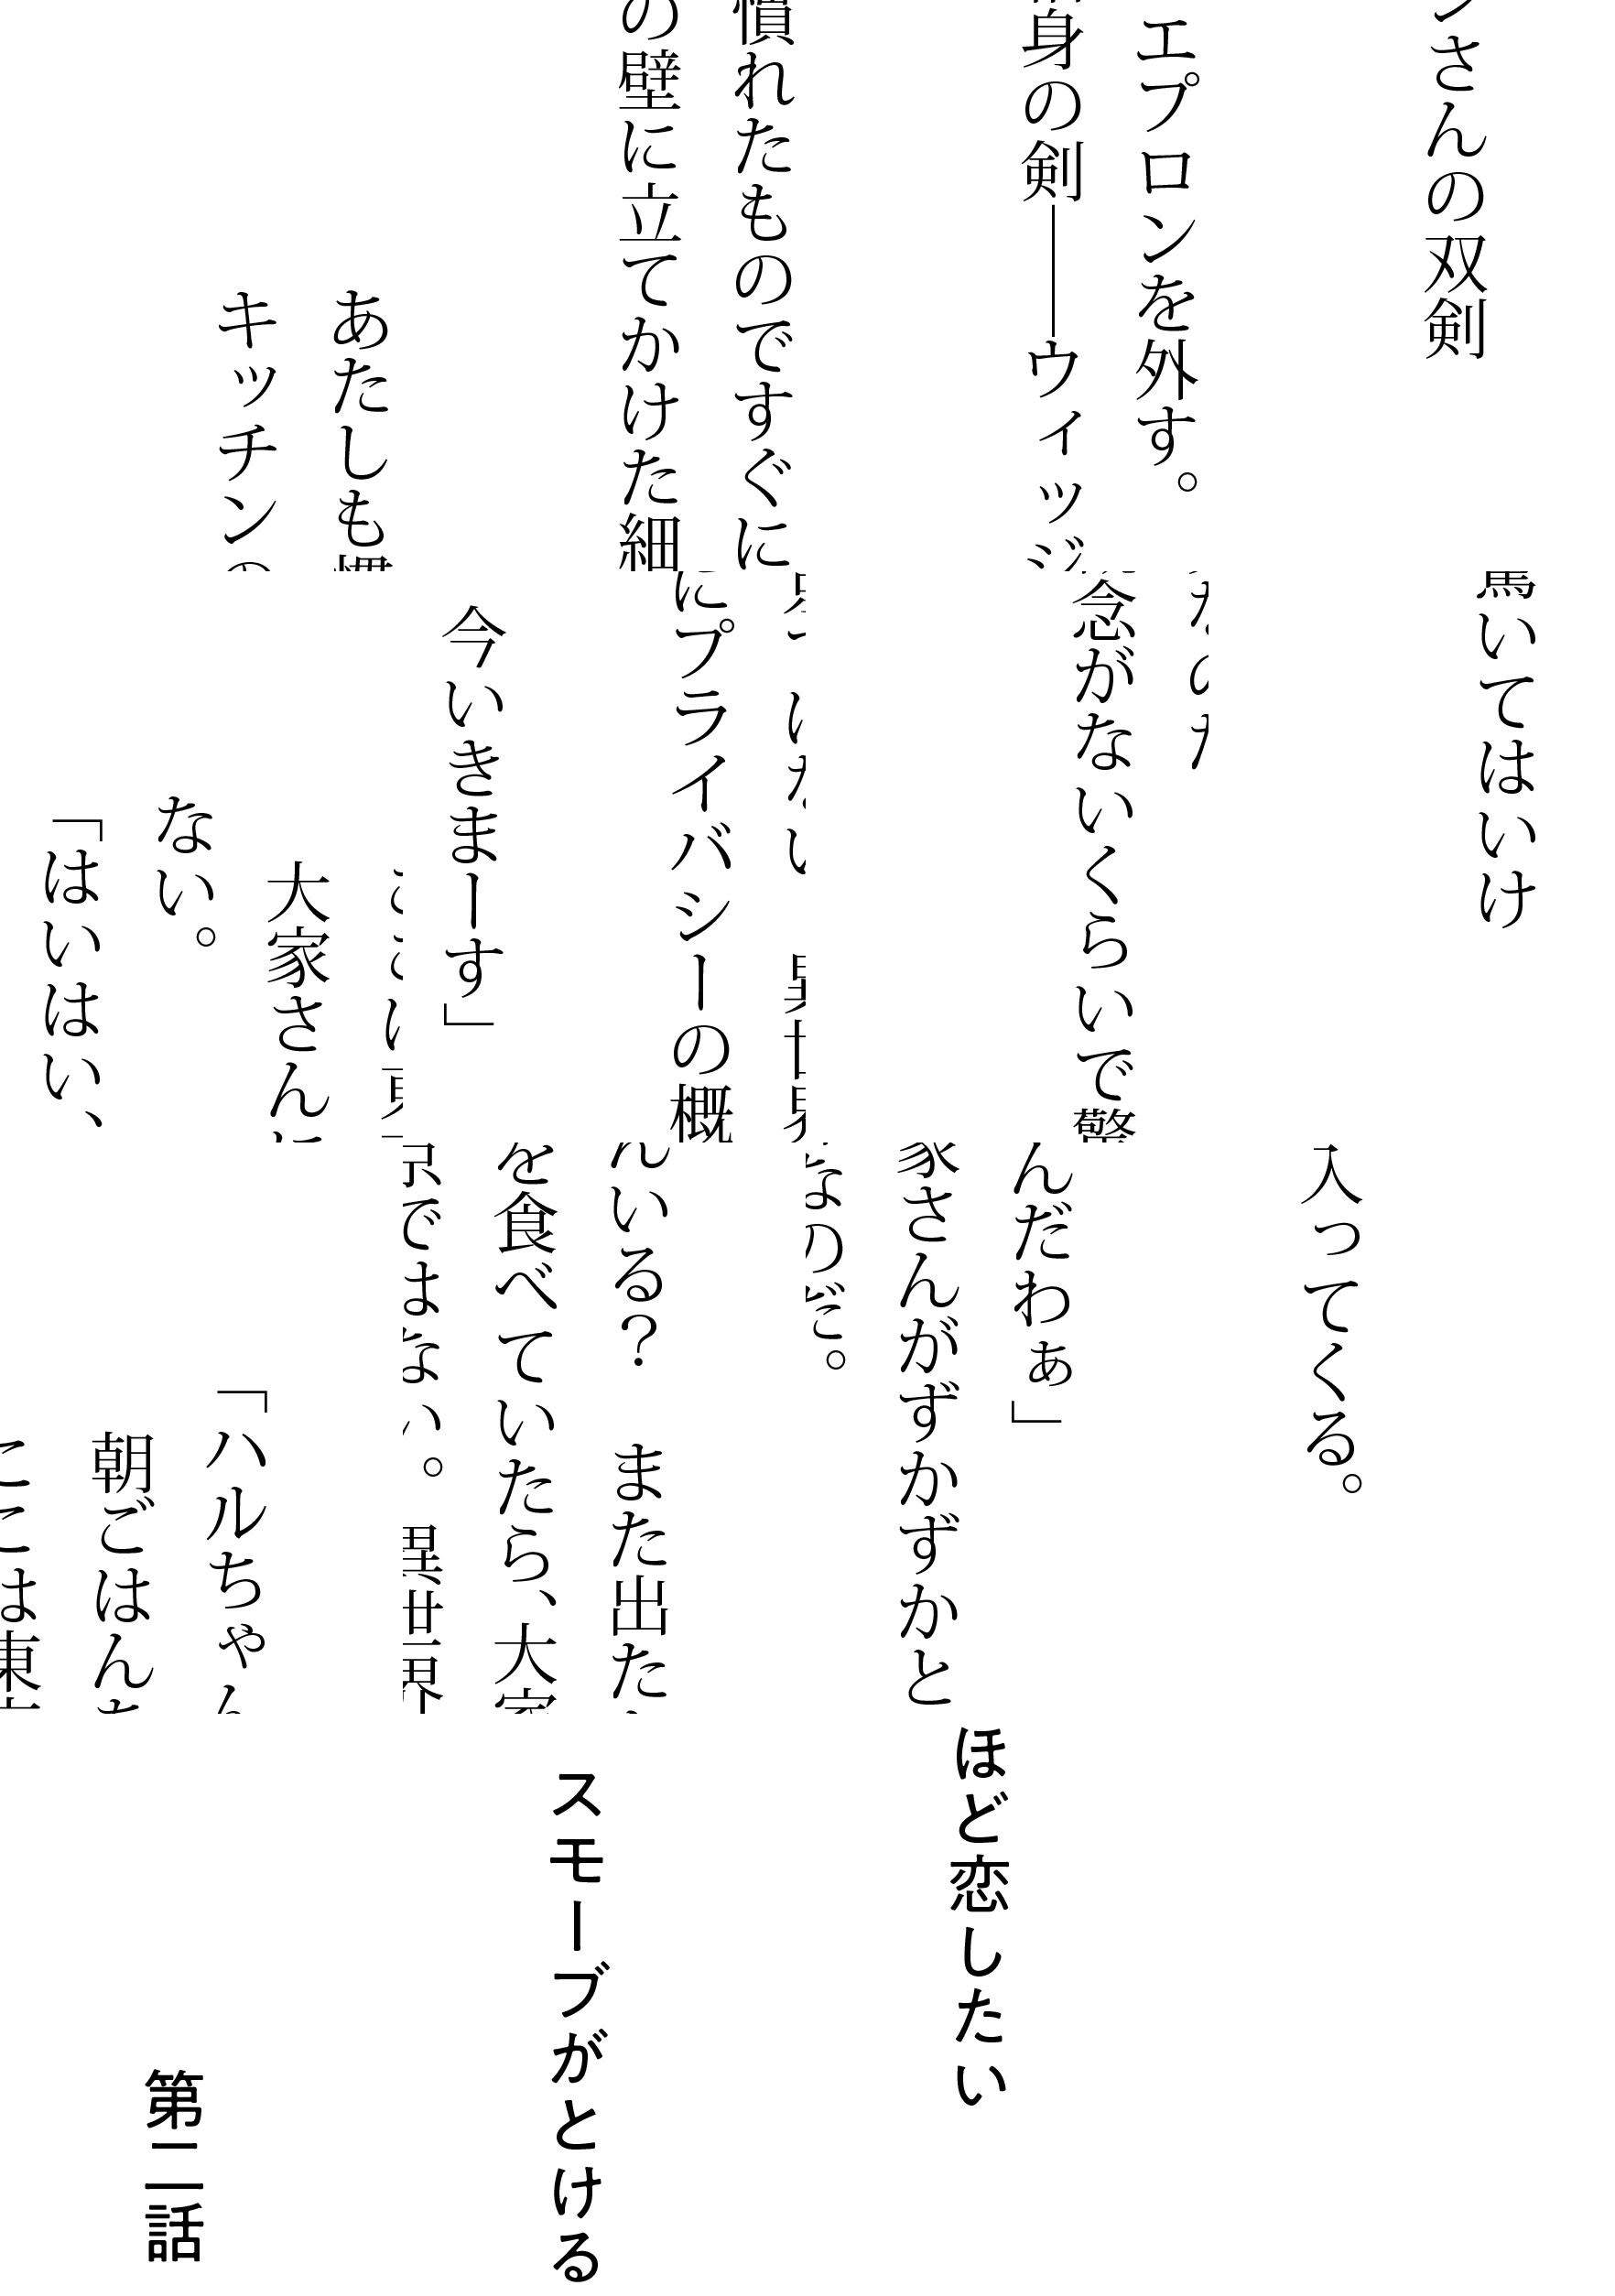 さんの双剣
エプロンを外す。
身の剣――ウィッジ
慣れたものですぐに
の壁に立てかけた細
あたしも
キッチン
いてはいけ
念がないくらいで
にプライバシーの概
今いきまーす」
大家さん
ない。
「はいはい、
入ってくる。
んだわぁ」
家さんがずかずかと
いる? また出た
を食べていたら、大
ではない。
「ハルちゃ
朝ごはん
ここは東
ほど恋したい
スモーブがとける
第二話